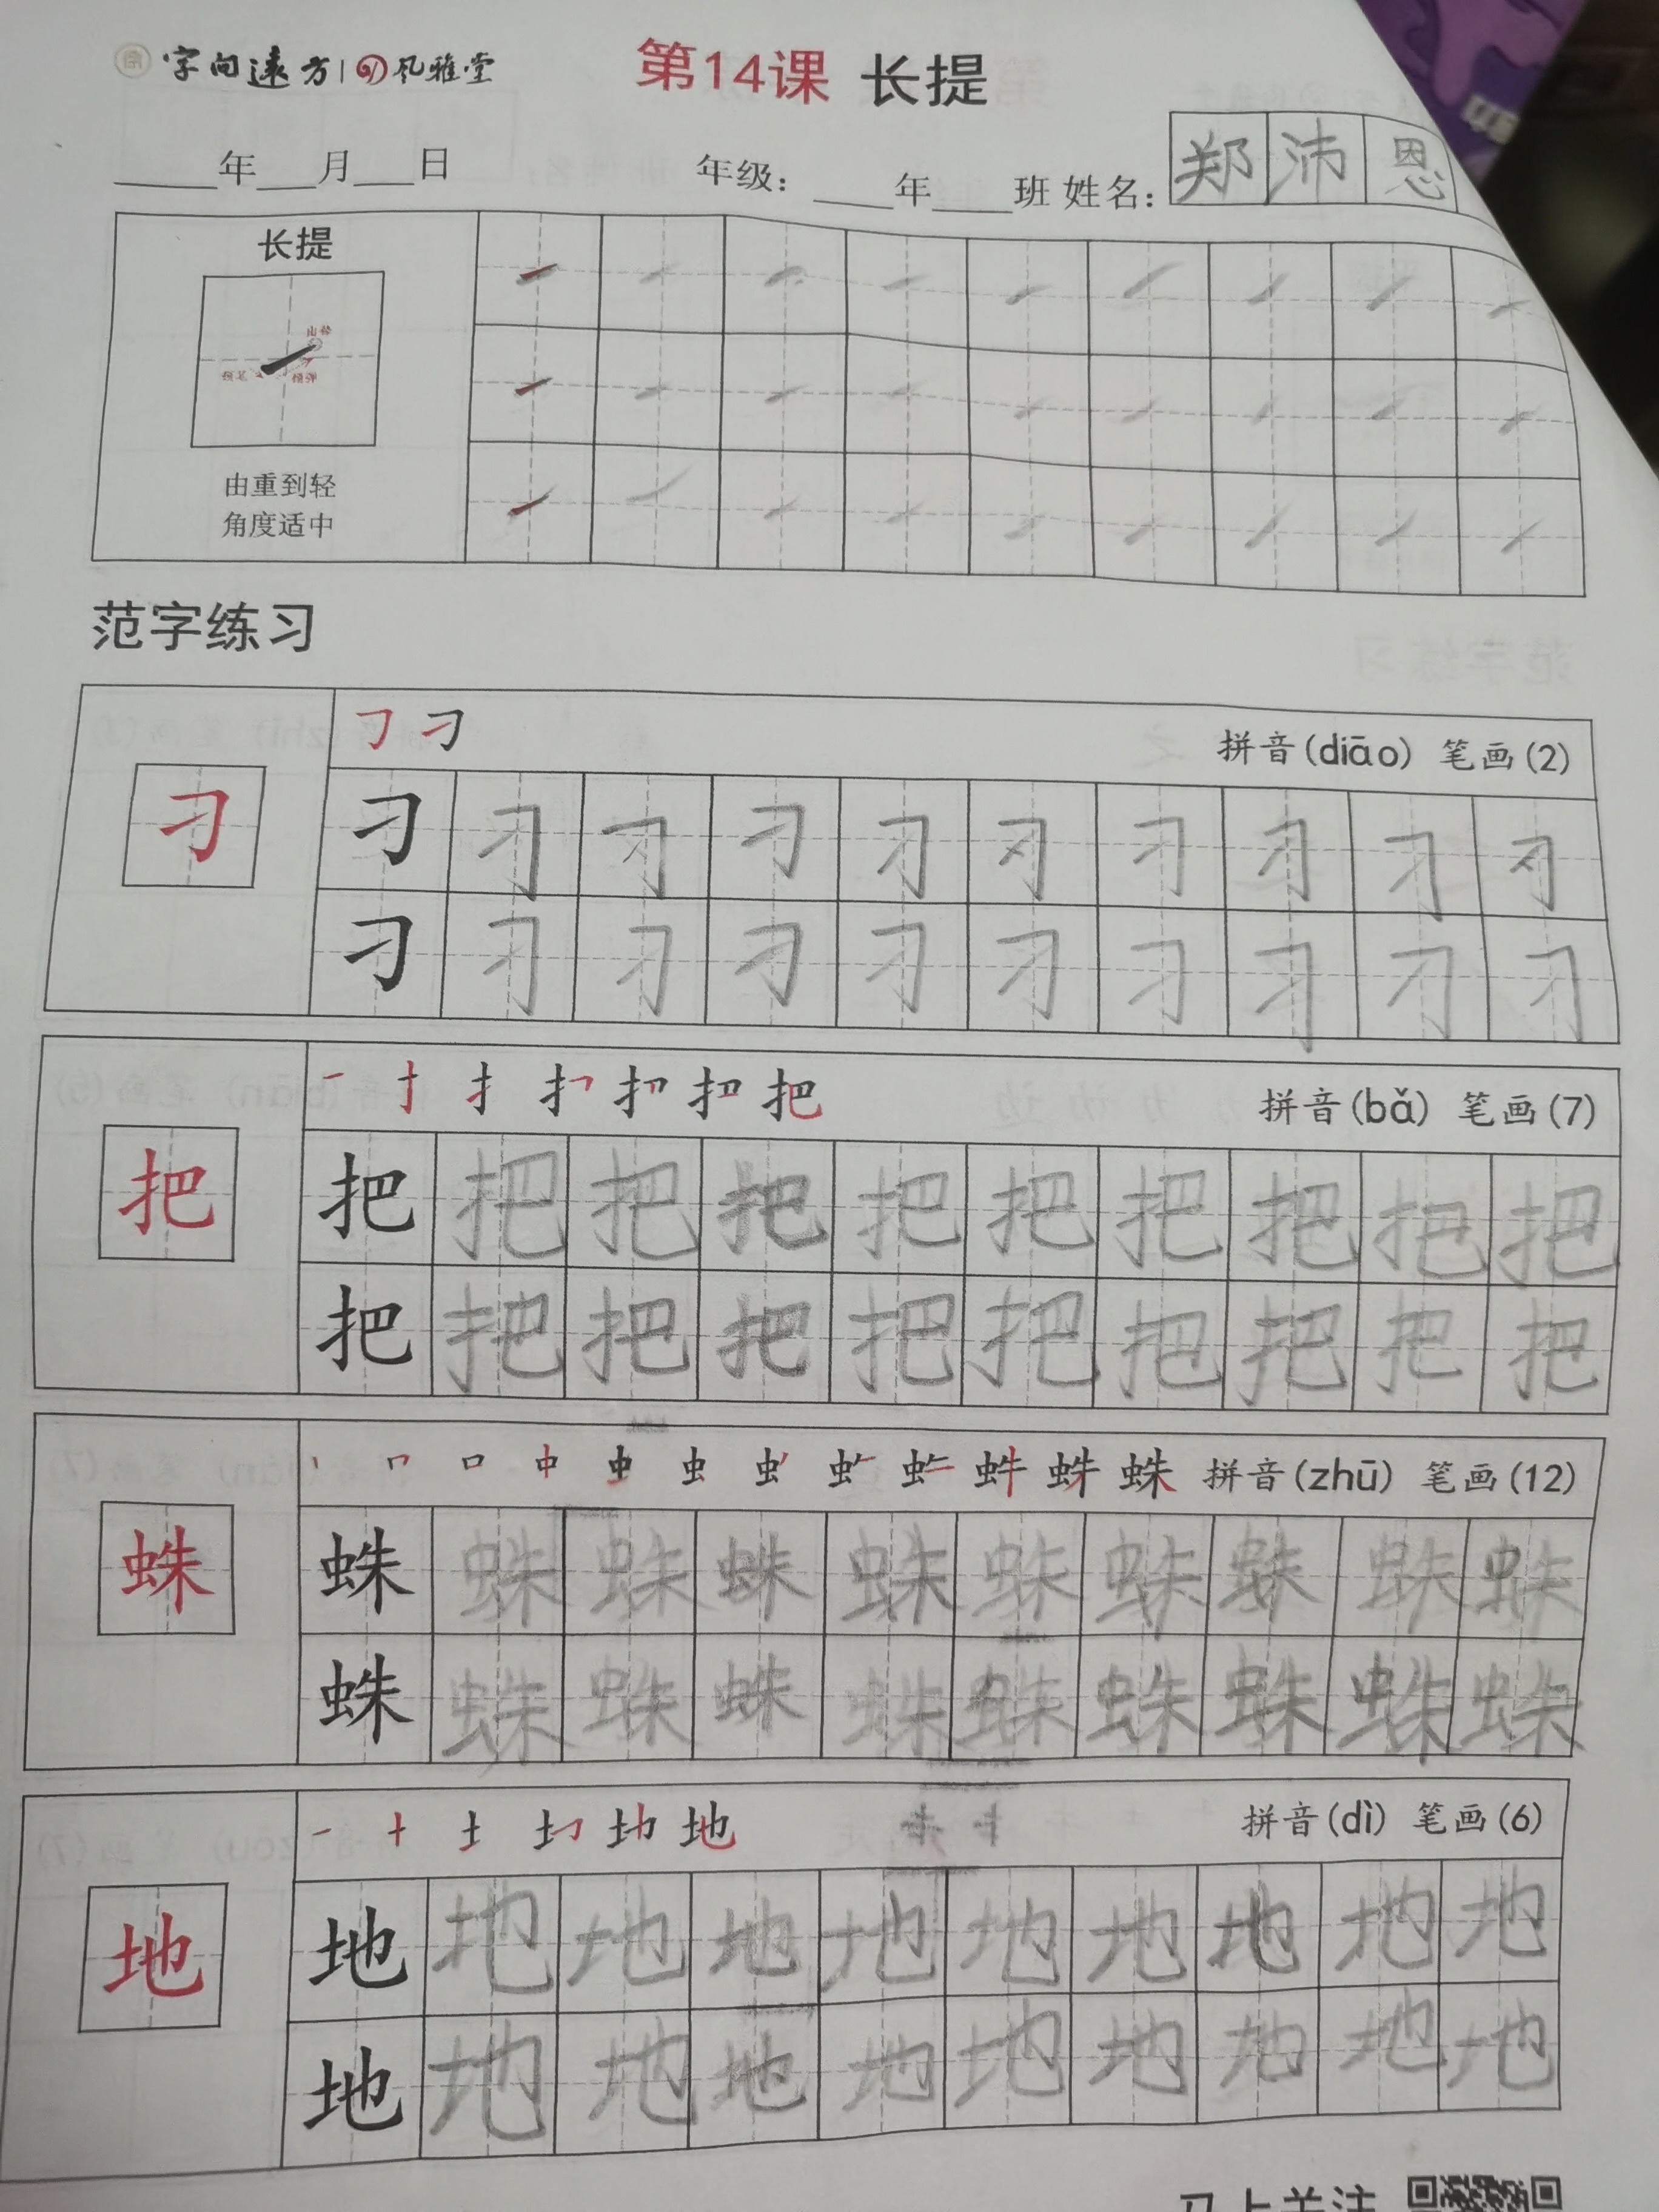 字向远方 风雅堂 第14课 长提
年 月 日 年级: 年 班 姓名: 郑沛恩
长提
出锋
顿笔 提弹
由重到轻
角度适中
范字练习
刁 拼音(diāo) 笔画(2)
刁 刁 刁 刁 刁 刁 刁 刁 刁 刁 刁
刁 刁 刁 刁 刁 刁 刁 刁 刁 刁
一 扌 把 拼音(bǎ) 笔画(7)
把 把 把 把 把 把 把 把 把 把 把
把 把 把 把 把 把 把 把 把 把
丶 口 中 虫 虫 蛛 蛛 拼音(zhū) 笔画(12)
蛛 蛛 蛛 蛛 蛛 蛛 蛛 蛛 蛛 蛛 蛛
蛛 蛛 蛛 蛛 蛛 蛛 蛛 蛛 蛛 蛛
一 十 土 地 拼音(dì) 笔画(6)
地 地 地 地 地 地 地 地 地 地 地
地 地 地 地 地 地 地 地 地 地
马上关注